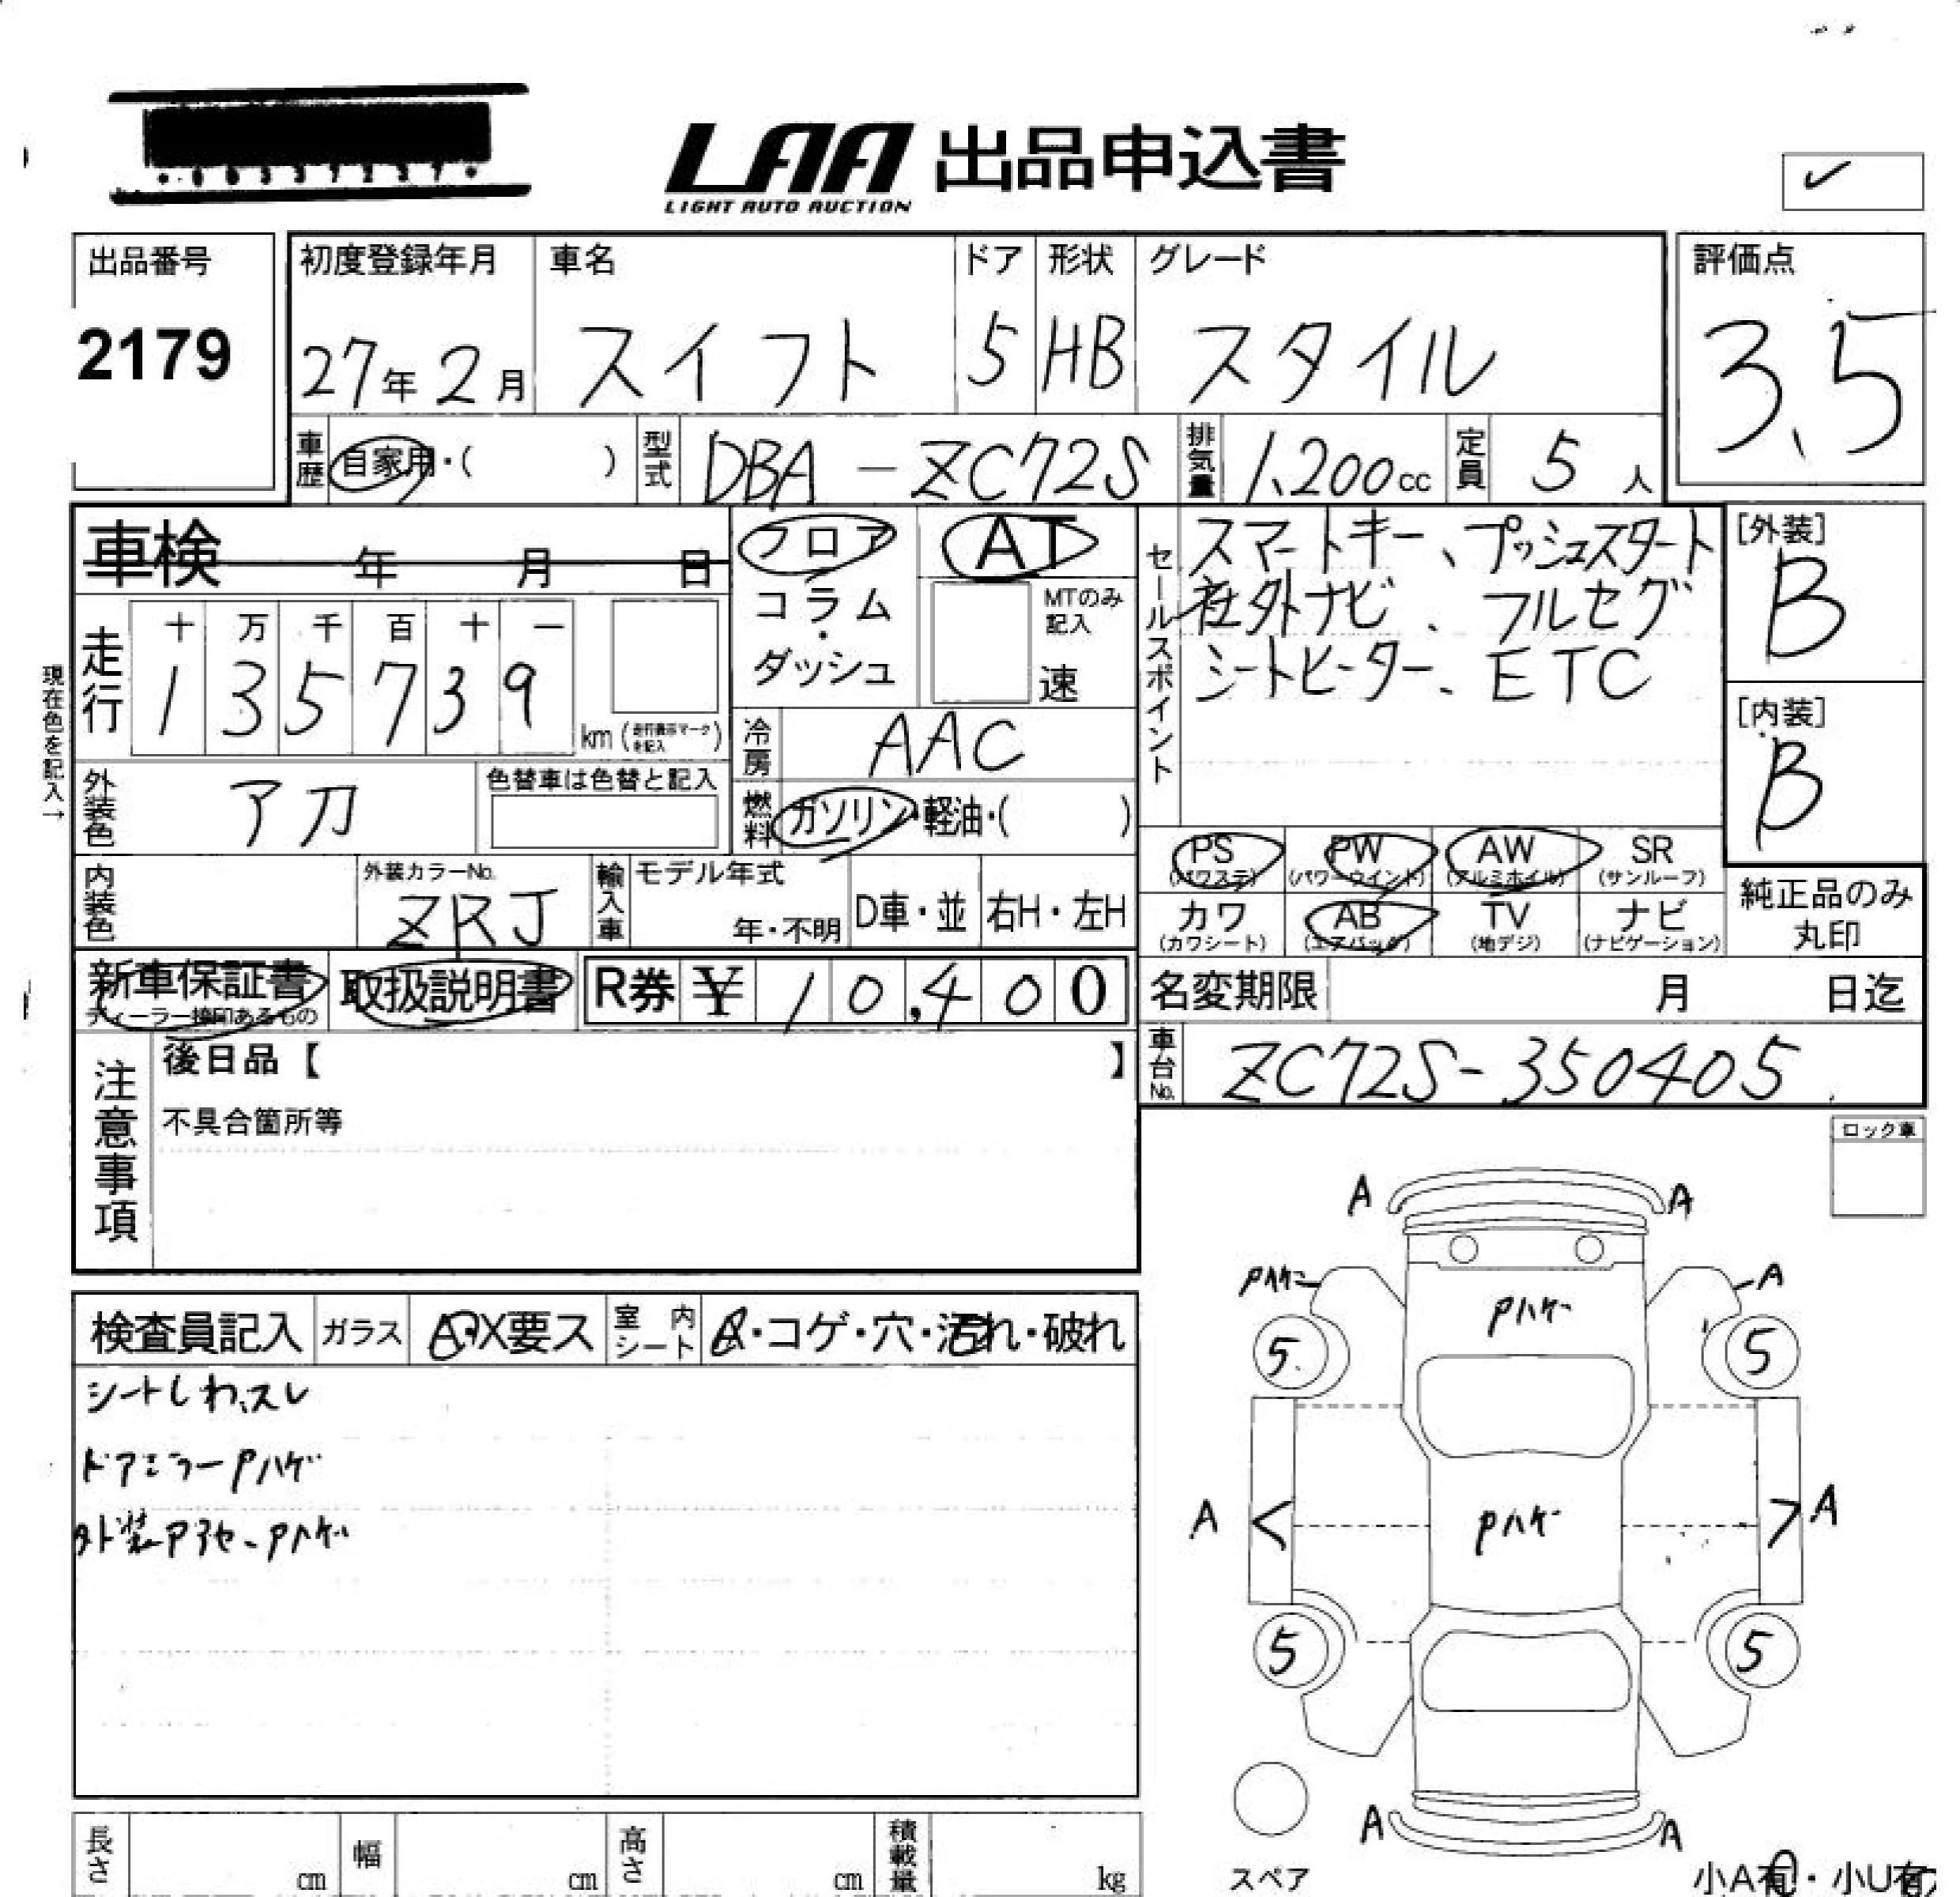 LAA 出品申込書
LIGHT AUTO AUCTION
出品番号
2179
初度登録年月
27年2月
車名
スイフト
ドア
5
形状
HB
グレード
スタイル
評価点
3.5
車歴
自家用・( )
型式
DBA-ZC72S
排気量
1,200cc
定員
5人
車検 年 月 日
フロア
コラム
・
ダッシュ
AT
MTのみ
記入
速
セールスポイント
スマートキー、プッシュスタート
社外ナビ、フルセグ
シートヒーター、ETC
[外装]
B
[内装]
B
現在色を記入→
走行
十 万 千 百 十 一
1 3 5 7 3 9
km
冷房
AAC
外装色
ア刀
色替車は色替と記入
燃料
ガソリン・軽油・( )
PS PW AW SR
(パワステ) (パワーウインド) (アルミホイル) (サンルーフ)
カワ AB TV ナビ
(カワシート) (エアバッグ) (地デジ) (ナビゲーション)
純正品のみ
丸印
内装色
外装カラーNo.
ZRJ
輸入車
モデル年式
年・不明
D車・並
右H・左H
新車保証書
ディーラー捺印あるもの
取扱説明書
R券 ¥10,400
名変期限 月 日迄
車台No.
ZC72S-350405
注意事項
後日品【 】
不具合箇所等
ロック車
検査員記入
ガラス
A・X要ス
室内
シート
A・コゲ・穴・汚れ・破れ
シートしわ、スレ
ドアミラーPハゲ
外装Pアセ、Pハゲ
A A
Pハゲ A
Pハゲ
5 5
A Pハゲ A
5 5
A A
スペア
小A有・小U有
長さ cm
幅 cm
高さ cm
積載量 kg